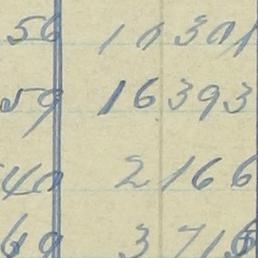 56 10301
59 16393
40 2166
69 3715